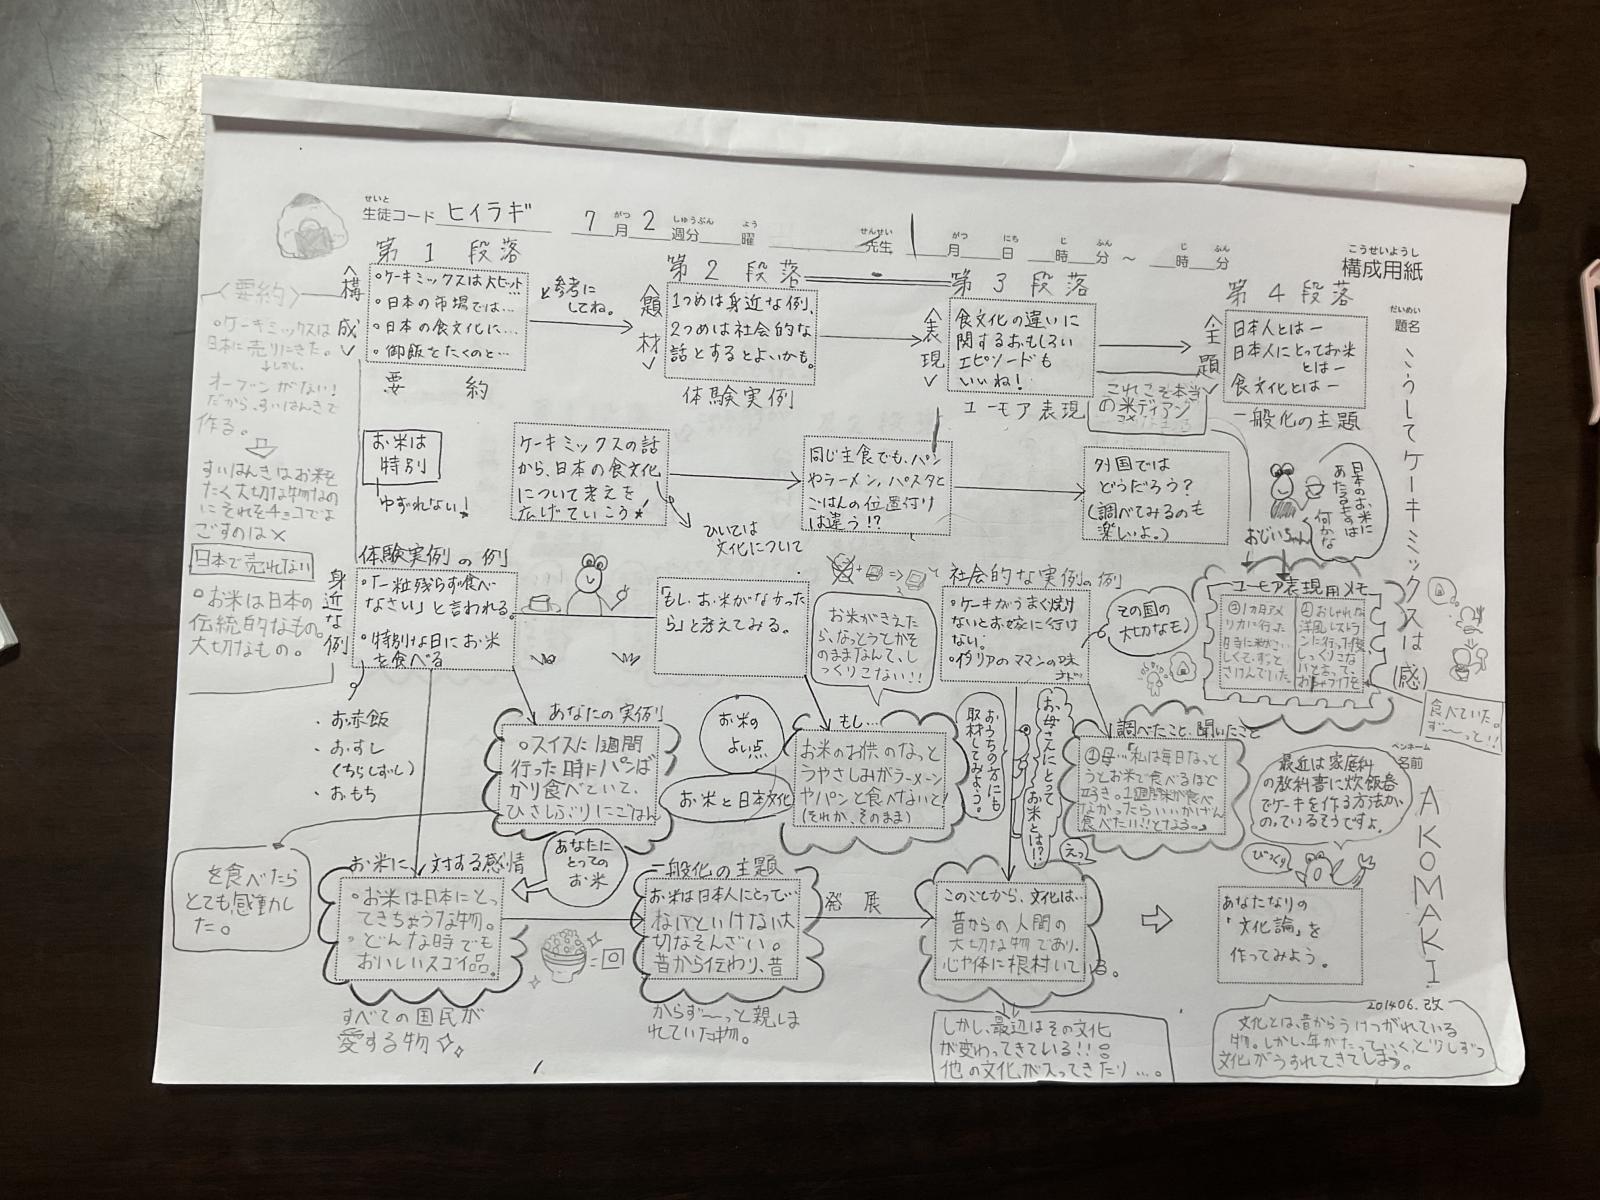 せいと
生徒コード ヒイラギ 7 がつ 月 2 しゅうぶん 週分 よう 曜 せんせい 先生 がつ 月 にち 日 じ 時 ふん 分 ～ じ 時 ふん 分
こうせいようし
構成用紙
だいめい
題名
こうしてケーキミックスは(感)
ペンネーム
名前
AKOMAKI
第1段落
＜構成＞
・ケーキミックスは大ヒット
・日本の市場では…
・日本の食文化に…
・御飯をたくのと…
要約
と参考に
してね。
第2段落
＜題材＞
1つめは身近な例、
2つめは社会的な
話とするとよいかも。
体験実例
第3段落
＜表現＞
食文化の違いに
関するおもしろい
エピソードも
いいね！
ユーモア表現
これこそ本当
の米ディアン
コメ
第4段落
＜主題＞
日本人とはー
日本人にとってお米
とはー
食文化とはー
一般化の主題
＜要約＞
・ケーキミックスは
日本に売りにきた。
↓しかし
オーブンがない！
だから、すいはんきで
作る。
すいはんきはお米を
たく大切な物なの
にそれをチョコでよ
ごすのは×
日本で売れない
・お米は日本の
伝統的なもの。
大切なもの。
お米は
特別
ゆずれない！
ケーキミックスの話
から、日本の食文化
について考えを
広げていこう！
ひいては
文化について
同じ主食でも、パン
やラーメン、パスタと
ごはんの位置付け
は違う！？
外国では
どうだろう？
（調べてみるのも
楽しいよ。）
おじいちゃん
日本のお米に
あたるものは
何かな
体験実例の例
身近な例
・「一粒残らず食べ
なさい」と言われる。
・特別な日にお米
を食べる
・お赤飯
・おすし
(ちらしずし)
・おもち
「もし、お米がなかった
ら」と考えてみる。
お米がきえた
ら、なっとうてかそ
のままなんて、し
っくりこない！！
社会的な実例の例
・ケーキがうまく焼け
ないとお嫁に行けな
い。
・イタリアのママンの味
その国の
大切なもの
ユーモア表現用メモ
③1カ月アメ
リカに行った
時に米がこい
しくて、ずっと
さけんでいた。
④おしゃれな
洋風レストラ
ンに行った後
しっくりこな
いと言って、
おちゃづけを
食べていた。
ず〜っと！！
あなたの実例
・スイスに1週間
行った時にパンば
かり食べていて、
ひさしぶりにごはん
を食べたら
とても感動し
た。
お米の
よい点
お米と日本文化
もし…
お米のお供のなっと
うやさしみがラーメーン
やパンと食べないと！
(それか、そのまま)
おうちの方にも
取材してみよう。
お母さんにとって
お米とは！？
えっ
調べたこと、聞いたこと
②母…「私は毎日なっと
うとお米で食べるほど
好き。1週間米が食べ
なかったらいいかげん
食べたい！！となる。」
最近は家庭科
の教科書に炊飯器
でケーキを作る方法が
のっているそうですよ。
びっくり
お米に対する感情
・お米は日本にとっ
てきちょうな物。
・どんな時でも
おいしいスゴイ品。
すべての国民が
愛する物
あなたに
とっての
お米
一般化の主題
お米は日本人にとって…
ないといけない大
切なそんざい。
昔から伝わり、昔
からず〜っと親しま
れていた物。
発展
このことから、文化は…
昔からの人間の
大切な物であり、
心や体に根付いてる。
しかし、最近はその文化
が変わってきている！！
他の文化が入ってきたり…。
あなたなりの
「文化論」を
作ってみよう。
201406.改
文化とは、昔からうけつがれている
物。しかし、年がたっていくと少しずつ
文化がうすれてきてしまう。